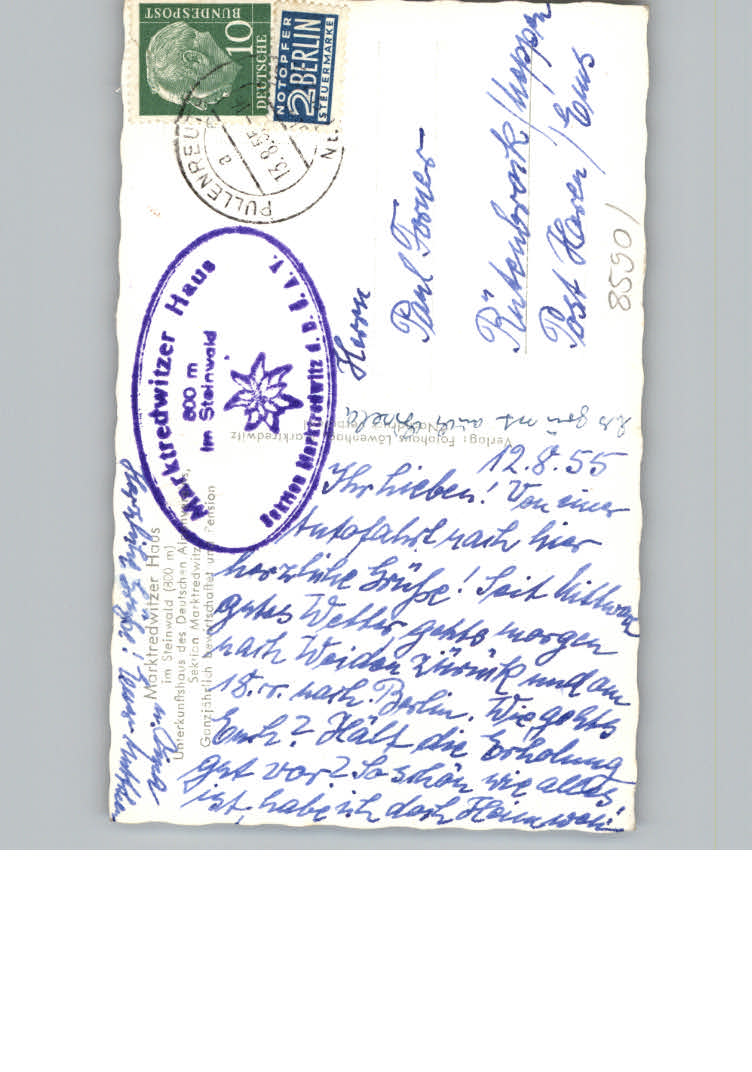 12.8.55
Ihr Lieben! Von einer
Autofahrt nach hier
herzliche Grüße! Seit Mittwoch
gutes Wetter, gehts morgen
nach Weiden zurück und am
18. nach Berlin. Wie gehts
Euch? Hält die Erholung
gut vor? So schön wie alles
ist, habe ich doch Heimweh!
Herzliche Grüße!
Herrn
Paul
Rütenbrock/Meppen
Post Haren/Ems
8590/
DEUTSCHE
BUNDESPOST
10
NOTOPFER
2 BERLIN
STEUERMARKE
PULLENREUTH
a
13.8.55
Marktredwitzer Haus
800 m
im Steinwald
Sektion Marktredwitz d. D. A. V.
Marktredwitzer Haus
im Steinwald (800 m)
Unterkunftshaus des Deutschen Alpenvereins,
Sektion Marktredwitz
Ganzjährlich bewirtschaftet und Pension
Verlag: Fotohaus Löwenhag, Marktredwitz